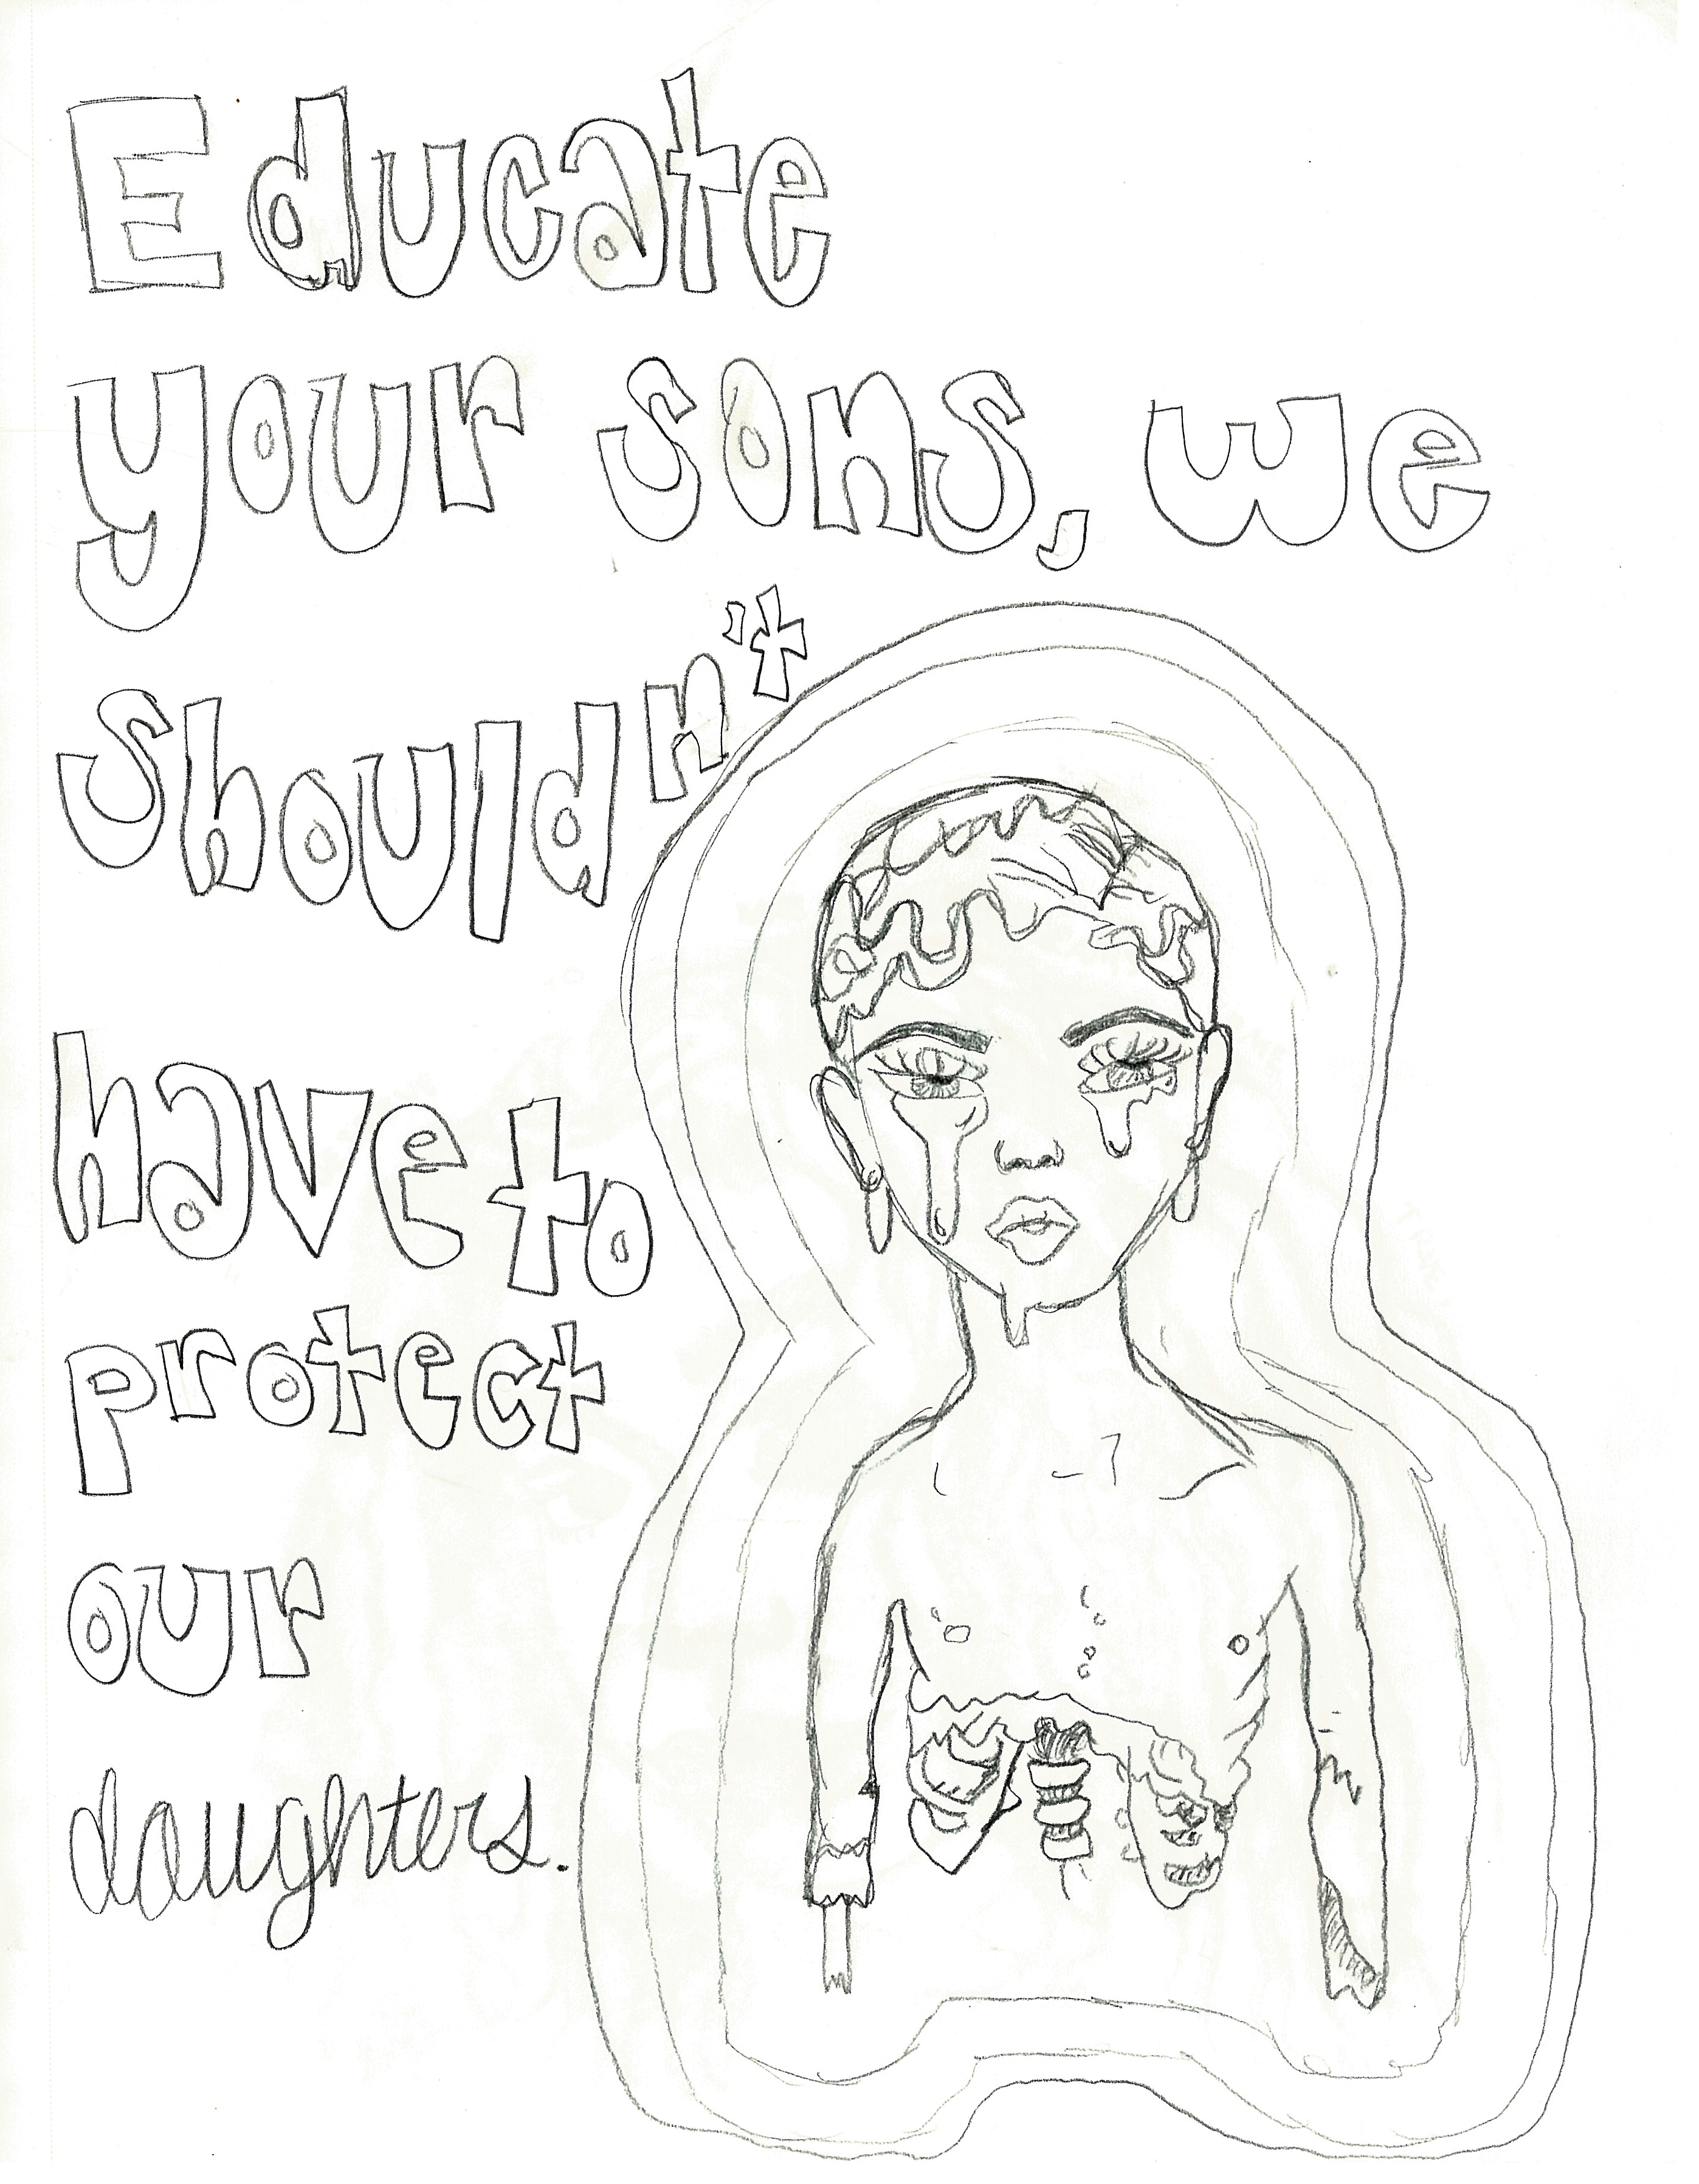 Educate
your sons, we
shouldn't
have to
protect
our
daughters.